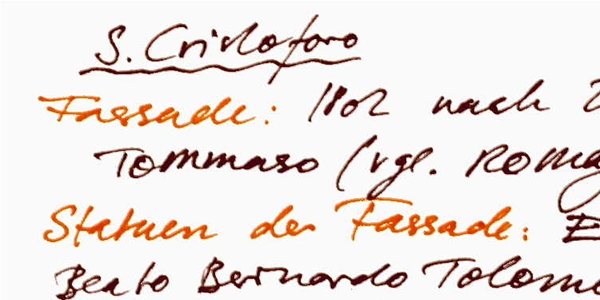 S. Cristoforo
Fassade: 1802 nach
Tommaso (vgl. Roma
Statuen der Fassade:
Beato Bernardo Tolome